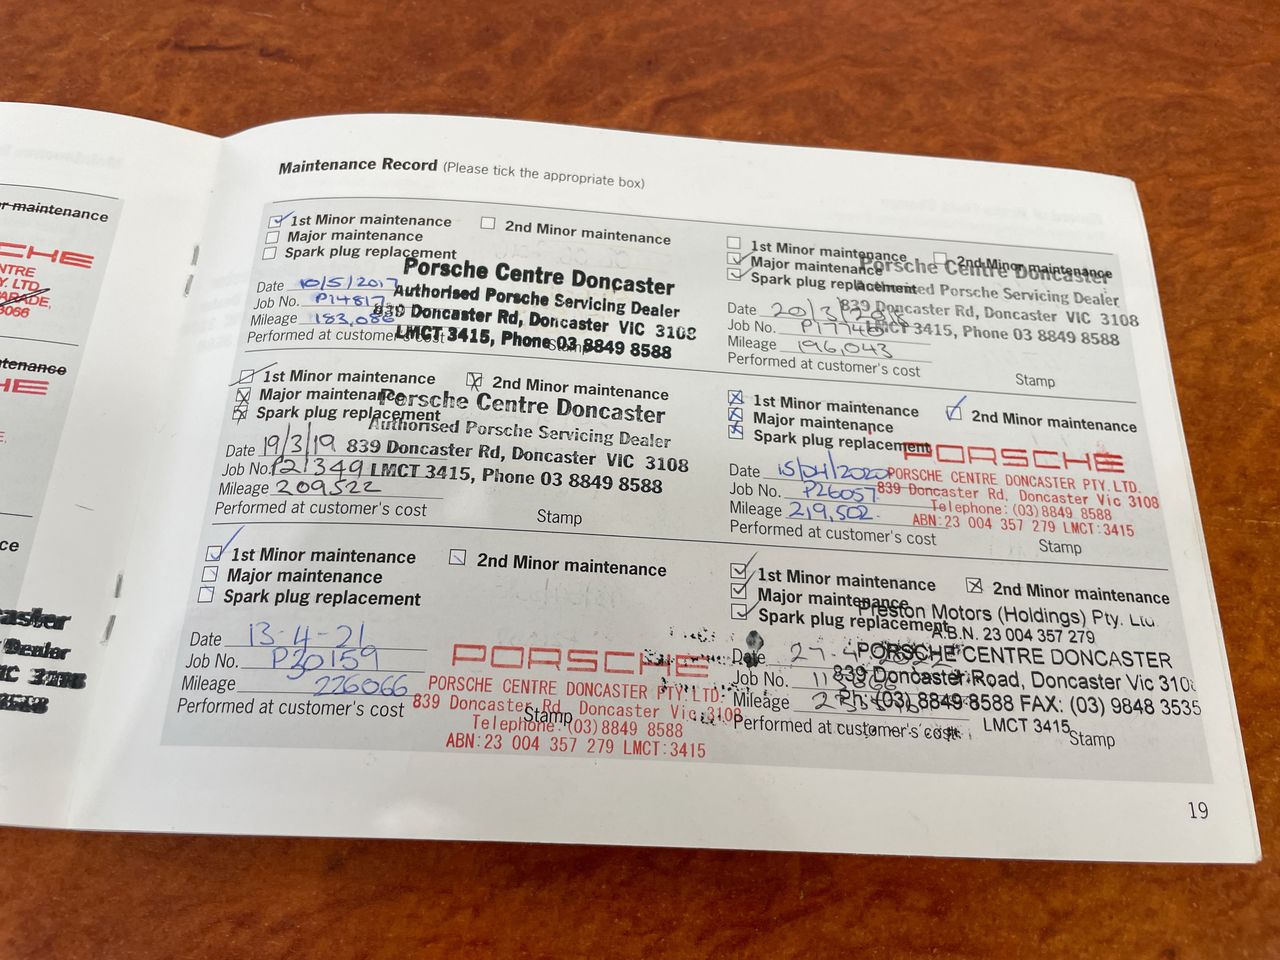 r maintenance
CHE
NTRE
Y. LTD
PARADE,
3066
tenance
HE
ce
aster
Dealer
IC 3108
8588
Maintenance Record (Please tick the appropriate box)
1st Minor maintenance
2nd Minor maintenance
Major maintenance
Spark plug replacement
Porsche Centre Doncaster
Authorised Porsche Servicing Dealer
839 Doncaster Rd, Doncaster VIC 3108
LMCT 3415, Phone 03 8849 8588
Date 10/5/2017
Job No. P14817
Mileage 183,086
Performed at customer's cost
Stamp
1st Minor maintenance
2nd Minor maintenance
Major maintenance
Spark plug replacement
Porsche Centre Doncaster
Authorised Porsche Servicing Dealer
839 Doncaster Rd, Doncaster VIC 3108
LMCT 3415, Phone 03 8849 8588
Date 20/3/2018
Job No.
Mileage 196,043
Performed at customer's cost
Stamp
1st Minor maintenance
2nd Minor maintenance
Major maintenance
Spark plug replacement
Porsche Centre Doncaster
Authorised Porsche Servicing Dealer
839 Doncaster Rd, Doncaster VIC 3108
LMCT 3415, Phone 03 8849 8588
Date 19/3/19
Job No. P21349
Mileage 209522
Performed at customer's cost
Stamp
1st Minor maintenance
2nd Minor maintenance
Major maintenance
Spark plug replacement
PORSCHE
PORSCHE CENTRE DONCASTER PTY. LTD.
839 Doncaster Rd, Doncaster Vic 3108
Telephone: (03) 8849 8588
ABN: 23 004 357 279 LMCT:3415
Date 15/04/2020
Job No. P26057
Mileage 219,502
Performed at customer's cost
Stamp
1st Minor maintenance
2nd Minor maintenance
Major maintenance
Spark plug replacement
Date 13-4-21
Job No. P30159
Mileage 226066
Performed at customer's cost
PORSCHE
PORSCHE CENTRE DONCASTER PTY LTD.
839 Doncaster Rd, Doncaster Vic 3108
Telephone: (03) 8849 8588
ABN: 23 004 357 279 LMCT:3415
Stamp
1st Minor maintenance
2nd Minor maintenance
Major maintenance
Spark plug replacement
Preston Motors (Holdings) Pty. Ltd.
A.B.N. 23 004 357 279
PORSCHE CENTRE DONCASTER
839 Doncaster Road, Doncaster Vic 3108
Ph: (03) 8849 8588 FAX: (03) 9848 3535
LMCT 3415
Date
Job No.
Mileage
Performed at customer's cost
Stamp
19